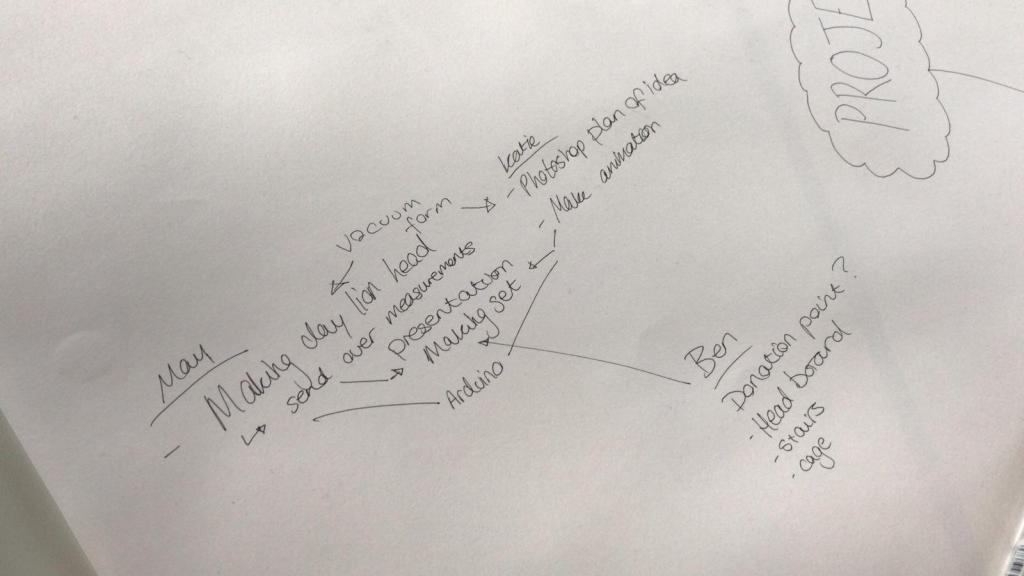 PROJE
Katie
- Photoshop plan of idea
- Make animation
vacuum
form
May
- Making clay lion head
send over measurements
presentation
Making set
Arduino
Ben
Donation point?
- Head board
- stairs
- cage